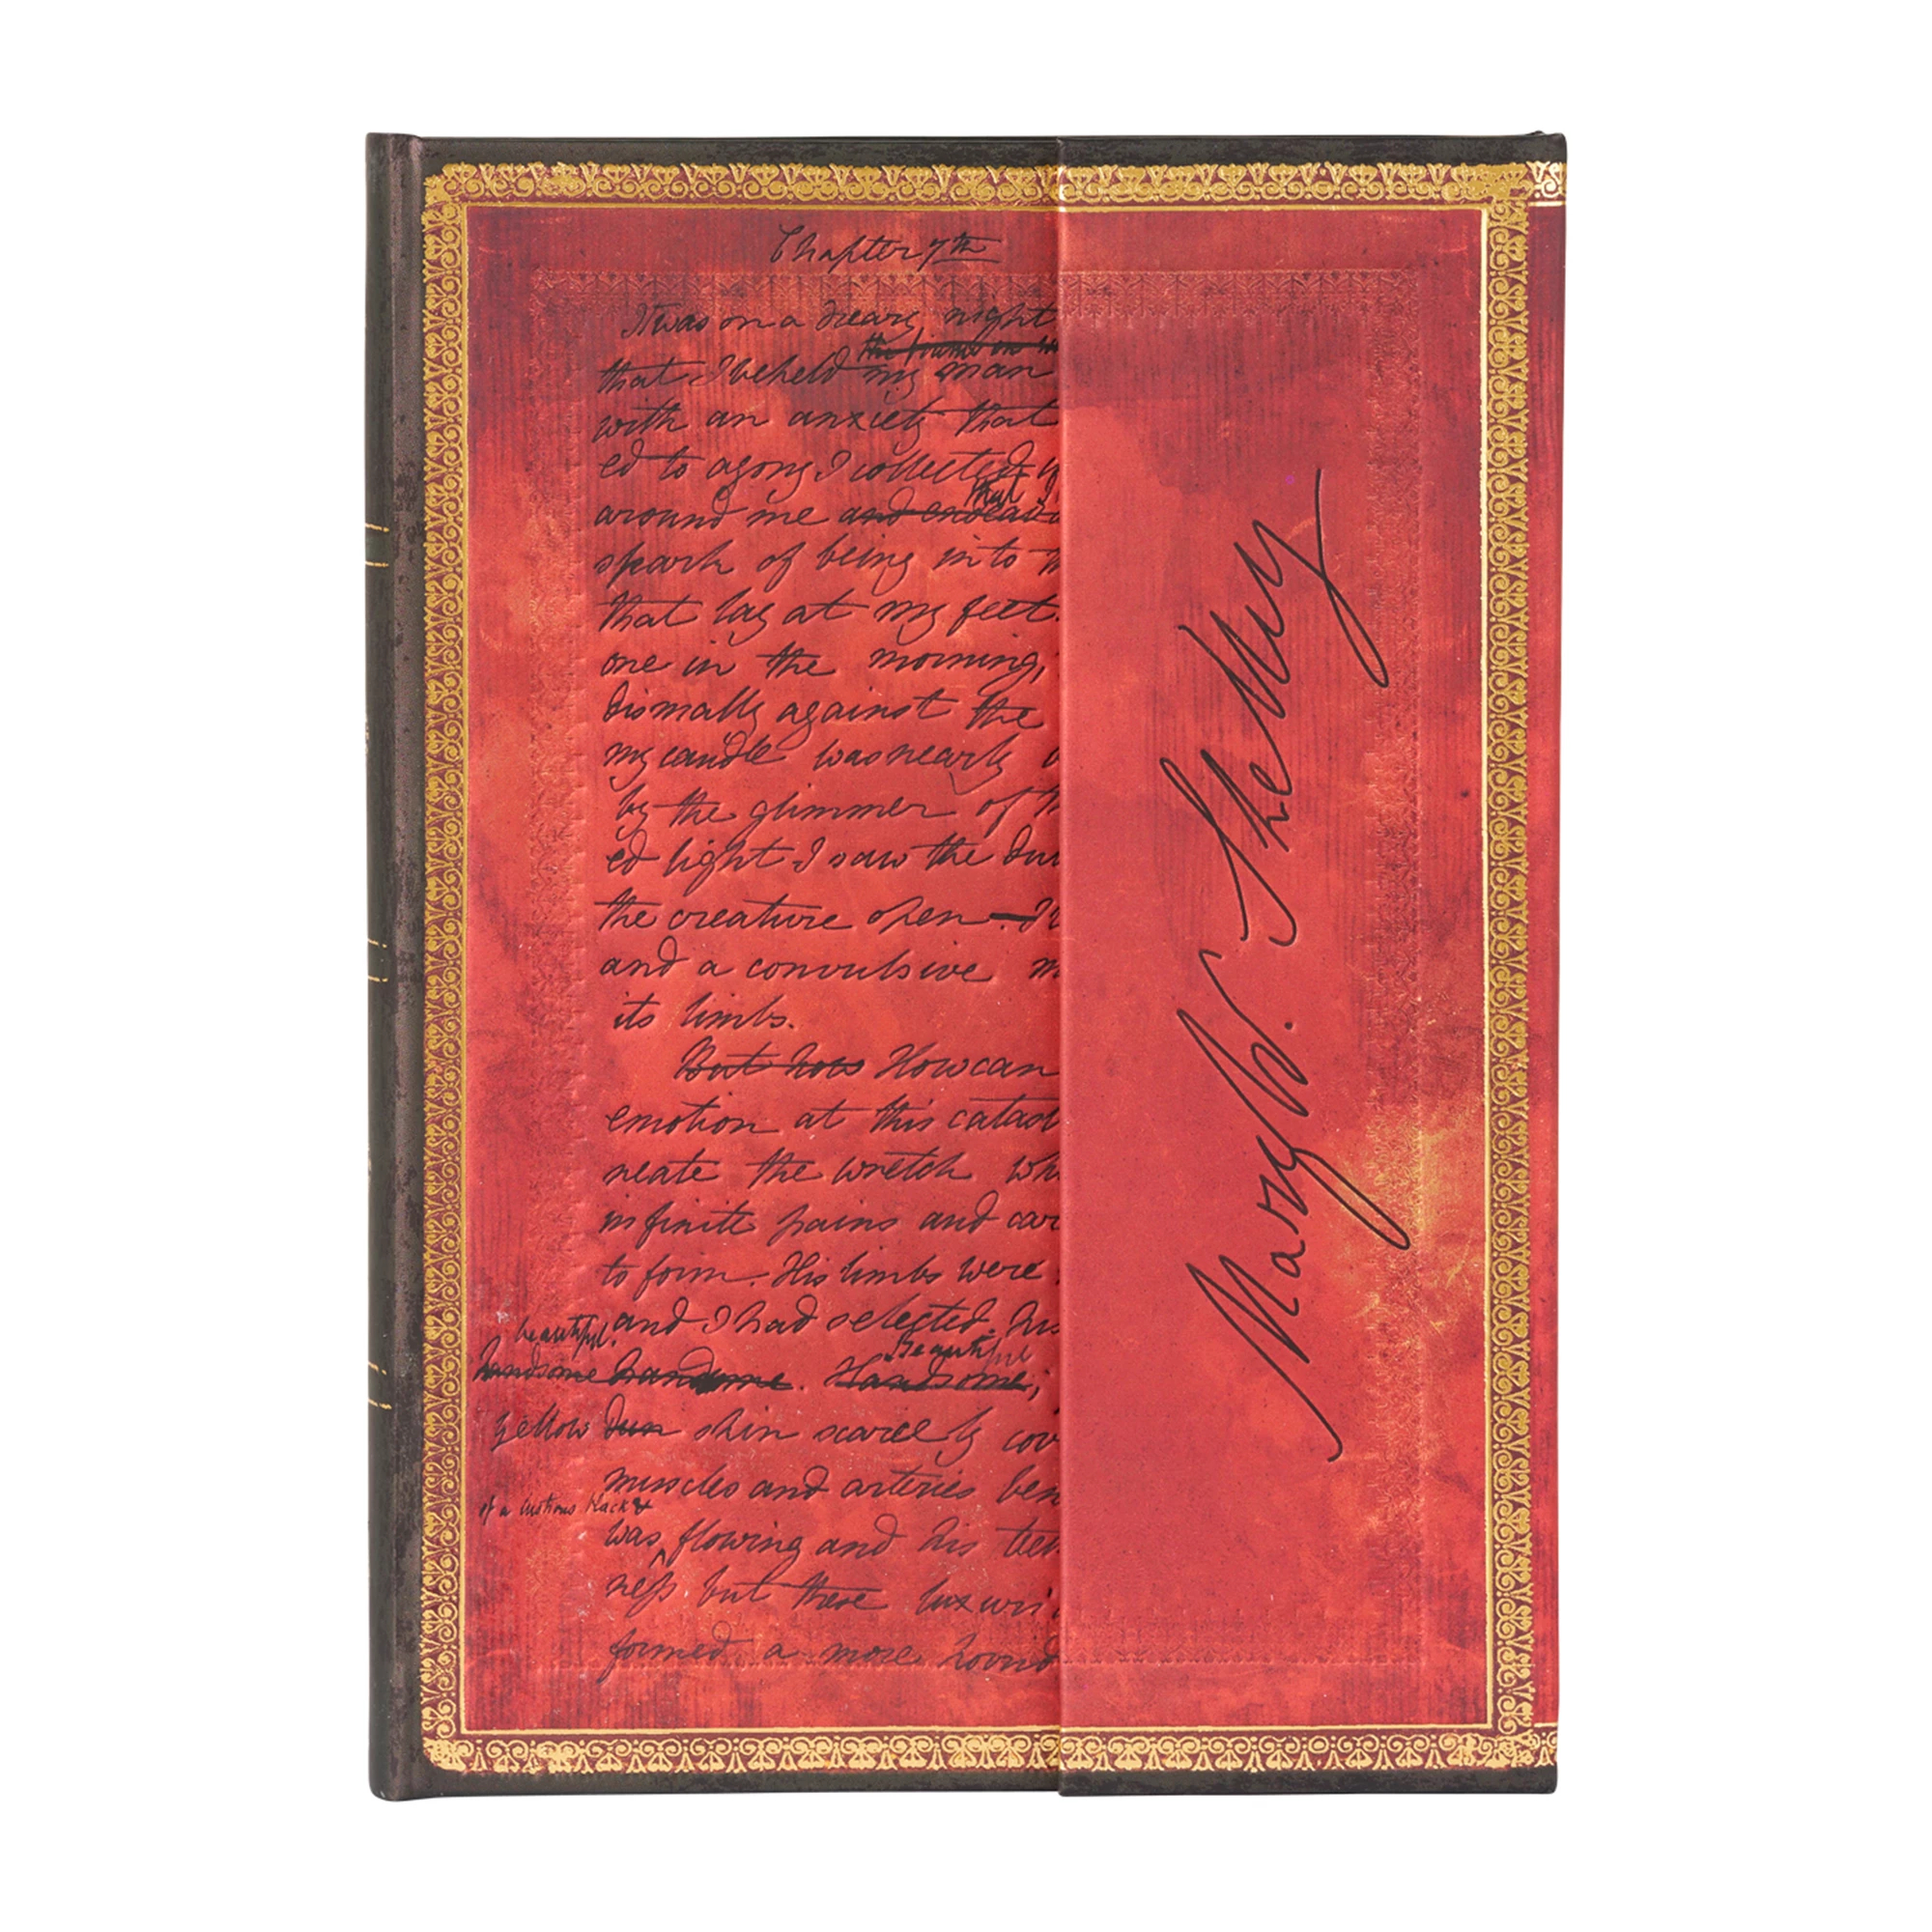 Chapter 7th
It was on a dreary night
that I beheld my man
with an anxiety that
ed to agony I collected
that I
around me and endeavo
spark of being into th
that lay at my feet.
one in the morning,
dismally against the
my candle was nearly
by the glimmer of th
ed light I saw the dul
the creature open
and a convulsive m
its limbs.
But how How can
emotion at this catast
neate the wretch wh
infinite pains and car
to form. His limbs were
and I had selected his
beautiful.
Beautiful
handsome handsome. Handsome;
yellow dun skin scarcely cov
muscles and arteries ben
of a lustrous black &
was flowing and his teet
ness but these luxuri
formed a more horrid
Mary W. Shelley